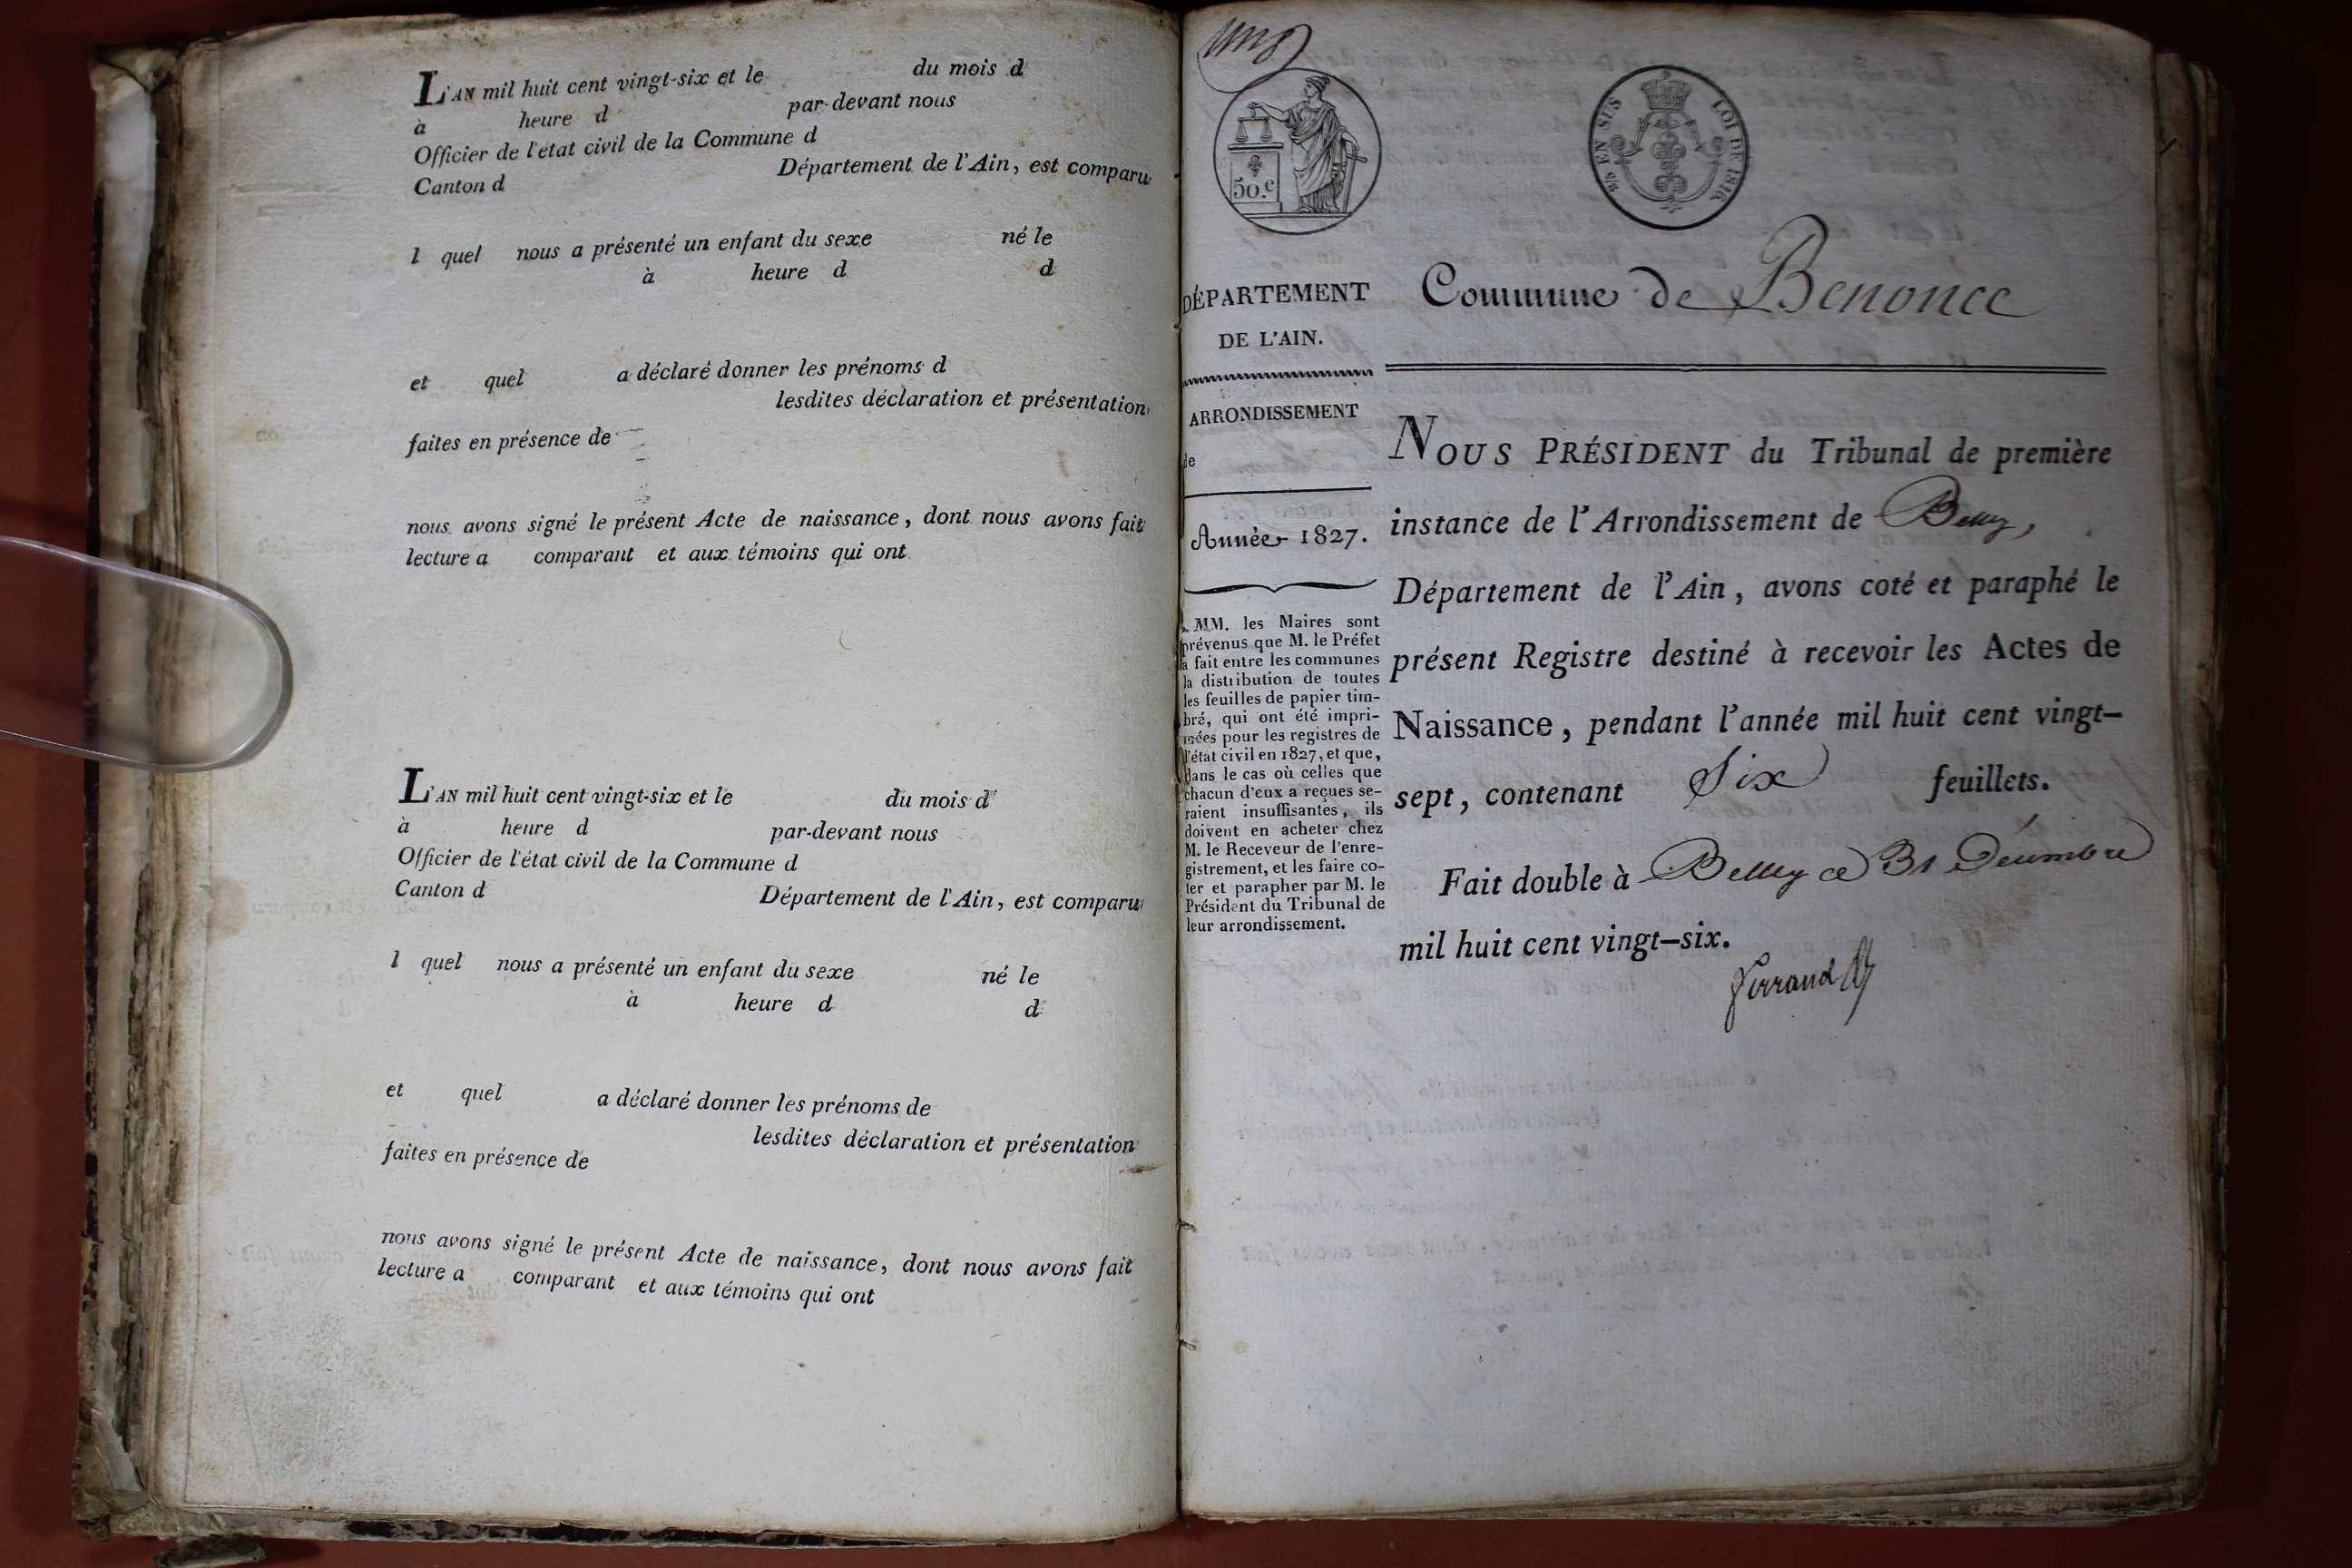 L'AN mil huit cent vingt-six et le du mois d
à heure d par-devant nous
Officier de l'état civil de la Commune d
Canton d Département de l'Ain, est comparu
l quel nous a présenté un enfant du sexe né le
à heure d d
et quel a déclaré donner les prénoms d
lesdites déclaration et présentation
faites en présence de
nous avons signé le présent Acte de naissance, dont nous avons fait
lecture a comparant et aux témoins qui ont
L'AN mil huit cent vingt-six et le du mois d
à heure d par-devant nous
Officier de l'état civil de la Commune d
Canton d Département de l'Ain, est comparu
l quel nous a présenté un enfant du sexe né le
à heure d d
et quel a déclaré donner les prénoms de
lesdites déclaration et présentation
faites en présence de
nous avons signé le présent Acte de naissance, dont nous avons fait
lecture a comparant et aux témoins qui ont
50.c
EN SUS LOI DE 1816
DÉPARTEMENT
DE L'AIN.
ARRONDISSEMENT
de
Année 1827.
MM. les Maires sont
prévenus que M. le Préfet
a fait entre les communes
la distribution de toutes
les feuilles de papier tim-
bré, qui ont été impri-
mées pour les registres de
l'état civil en 1827, et que,
dans le cas où celles que
chacun d'eux a reçues se-
raient insuffisantes, ils
doivent en acheter chez
M. le Receveur de l'enre-
gistrement, et les faire co-
ter et parapher par M. le
Président du Tribunal de
leur arrondissement.
Commune de Benonce
NOUS PRÉSIDENT du Tribunal de première
instance de l'Arrondissement de Belley,
Département de l'Ain, avons coté et paraphé le
présent Registre destiné à recevoir les Actes de
Naissance, pendant l'année mil huit cent vingt-
sept, contenant Six feuillets.
Fait double à Belley ce 31 Décembre
mil huit cent vingt-six.